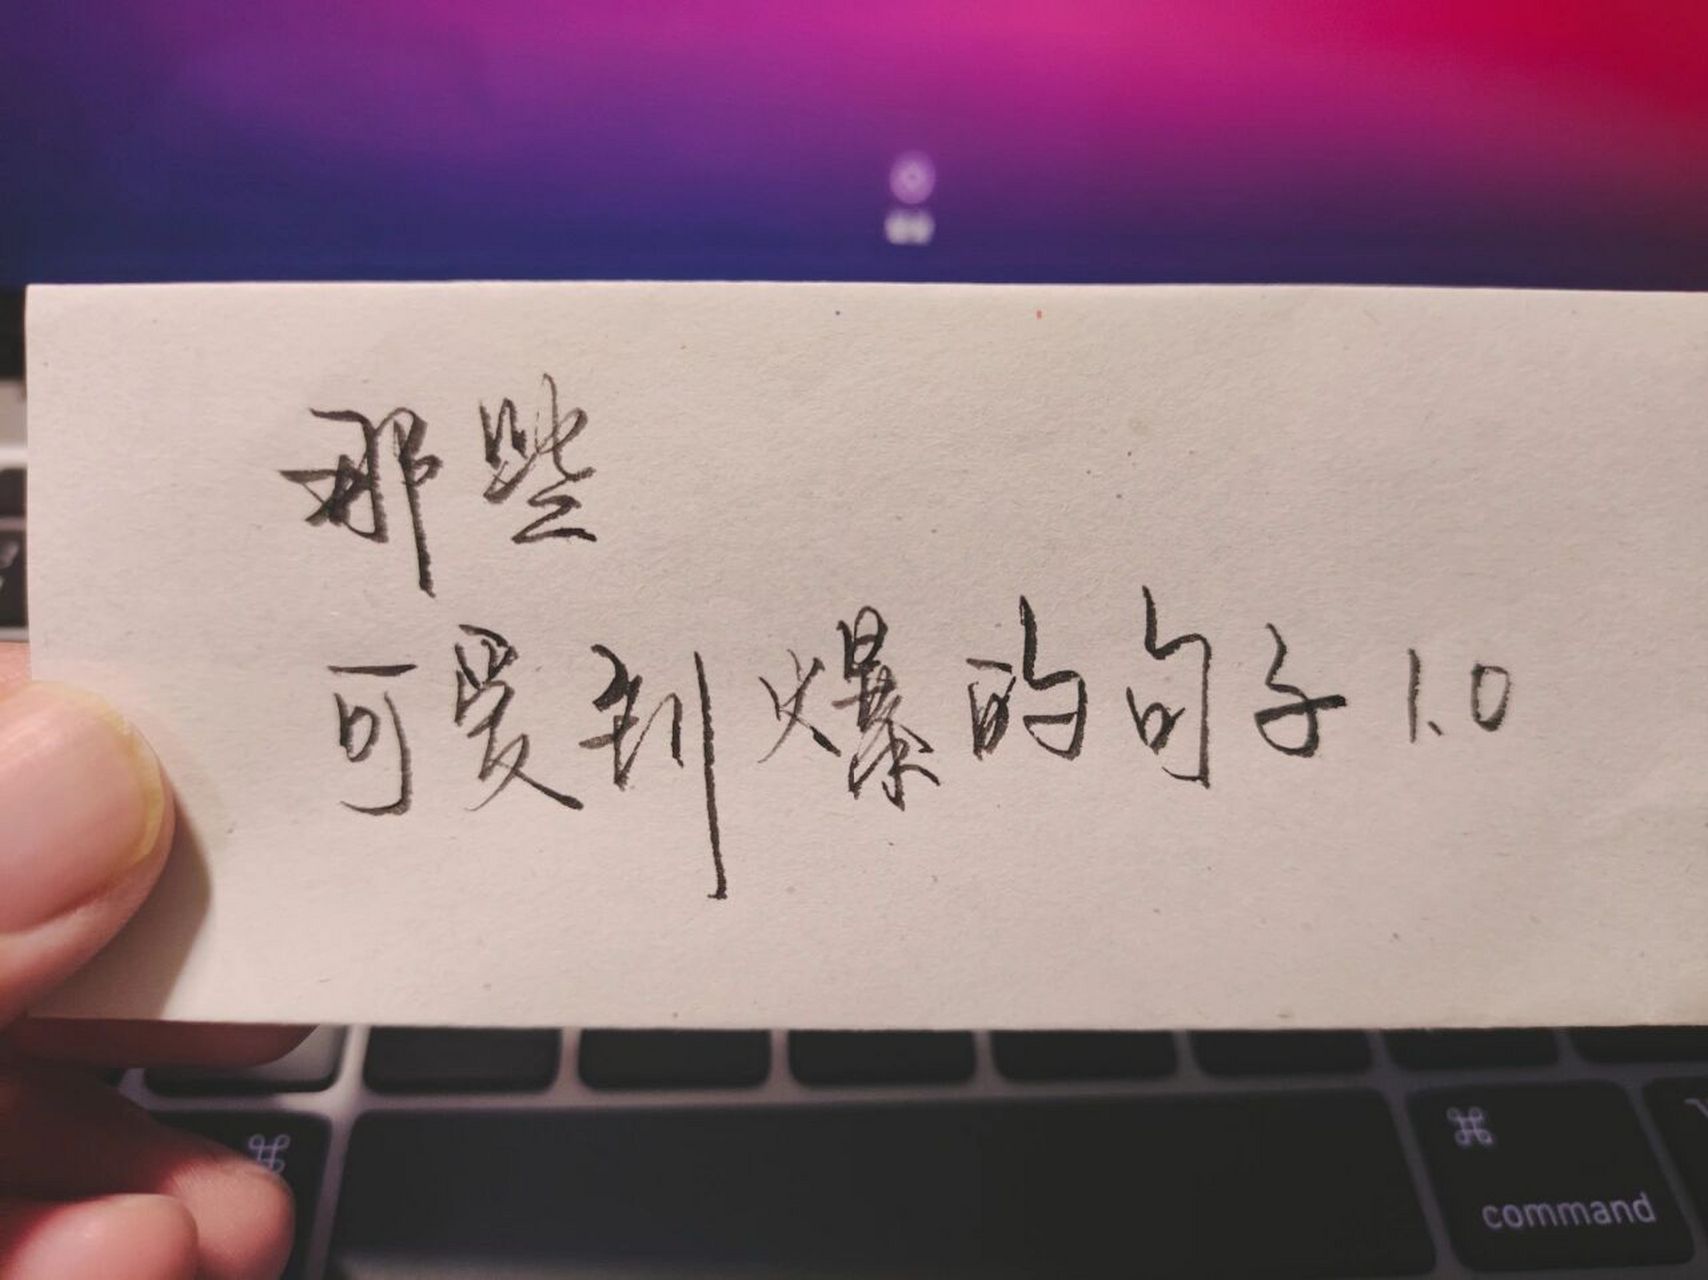 那些
可爱到爆的句子1.0
⌘ ⌘
command